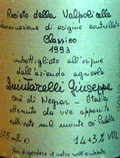 Recioto della Valpolicella
Denominazione di origine controllata
Classico
1993
imbottigliato all'origine
dall'azienda agricola
Quintarelli Giuseppe
Cerè di Negrar - Italia
ottenuto da uve appassite
14+3% VOL.